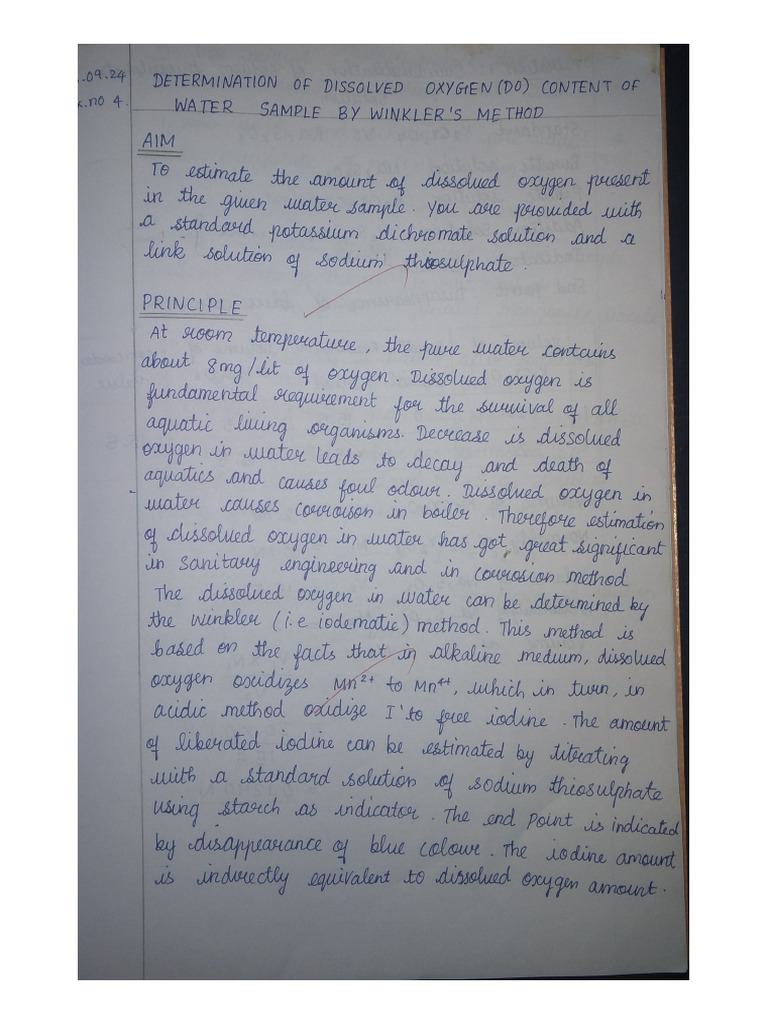 .09.24
DETERMINATION OF DISSOLVED OXYGEN (DO) CONTENT OF
.no 4.
WATER SAMPLE BY WINKLER'S METHOD
AIM
To estimate the amount of dissolved oxygen present
in the given water sample. You are provided with
a standard potassium dichromate solution and a
link solution of sodium thiosulphate.
PRINCIPLE
At room temperature, the pure water contains
about 8mg/lit of oxygen. Dissolved oxygen is
fundamental requirement for the survival of all
aquatic living organisms. Decrease is dissolved
oxygen in water leads to decay and death of
aquatics and causes foul odour. Dissolved oxygen in
water causes corroison in boiler. Therefore estimation
of dissolved oxygen in water has got great significant
in sanitary engineering and in corrosion method
The dissolved oxygen in water can be determined by
the winkler (i.e iodematic) method. This method is
based on the facts that in alkaline medium, dissolved
oxygen oxidizes Mn²⁺ to Mn⁴⁺, which in turn, in
acidic method oxidize I⁻ to free iodine. The amount
of liberated iodine can be estimated by titrating
with a standard solution of sodium thiosulphate
using starch as indicator. The end point is indicated
by disappearance of blue colour. The iodine amount
is indirectly equivalent to dissolved oxygen amount.